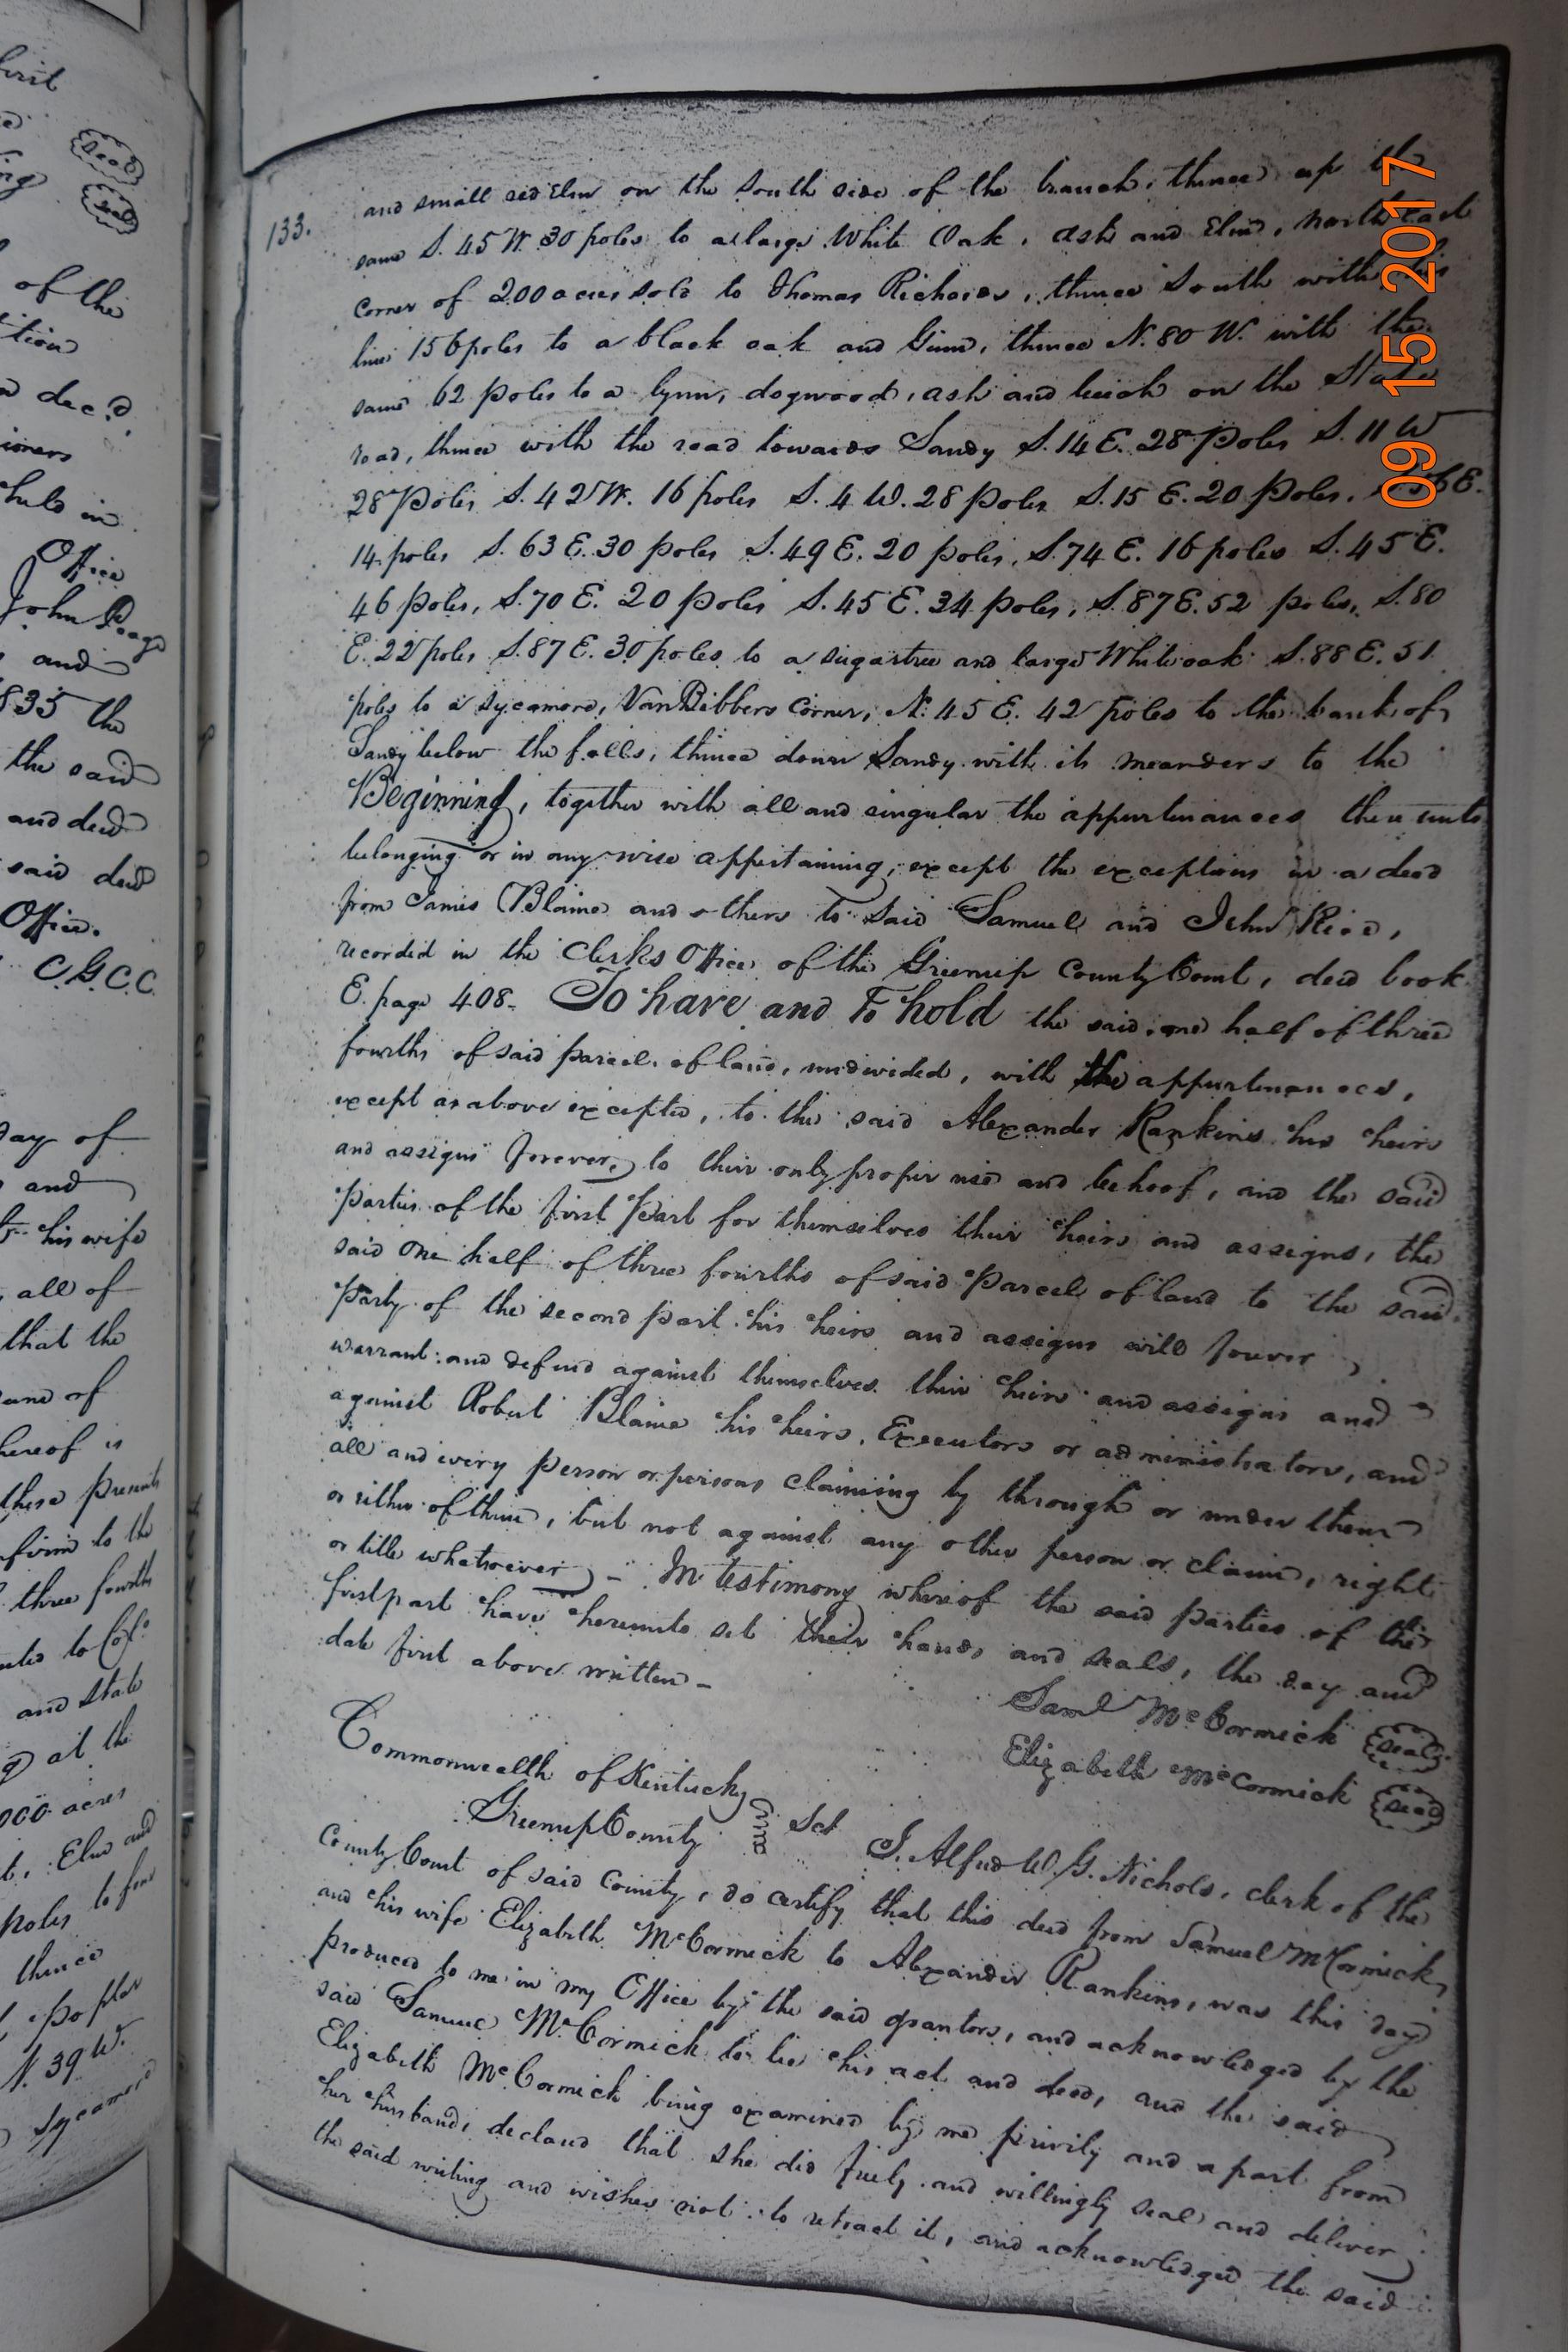 first
seal
seal
of the
dec.d
Office
John Poage
and
1835 the
the said
and deed
said deed
Office.
C.G.C.C.
day of
and
his wife
all of
that the
hereof is
these presents
three fourths
and State
at the
acres
Elm and
poles to four
thence
poplar
N. 39 W.
Sycamore
133.
and small red Elm on the South side of the branch, thence up the
same S. 45 W. 30 poles to a large White Oak, ash and Elm, North East
corner of 200 acres sold to Thomas Richards, thence South with his
line 156 poles to a black oak and Gum, thence N. 80 W. with the
same 62 poles to a lynn, dogwood, ash and beech on the State
road, thence with the road towards Sandy S. 14 E. 28 Poles S. 11 W
28 Poles S. 42 W. 16 poles S. 4 W. 28 poles S. 15 E. 20 Poles. E.
14 poles S. 63 E. 30 poles S. 49 E. 20 poles, S. 74 E. 16 poles S. 45 E.
46 poles, S. 70 E. 20 poles S. 45 E. 34 poles, S. 87 E. 52 poles, S. 80
E. 22 poles S. 87 E. 30 poles to a sugartree and large White oak S. 88 E. 51
poles to a sycamore, VanBibbers Corner, N. 45 E. 42 poles to the bank of
Sandy below the falls, thence down Sandy with its meanders to the
Beginning, together with all and singular the appurtenances thereunto
belonging or in any wise appertaining, except the exceptions in a deed
from James Blaine and others to said Samuel and John Rice,
recorded in the Clerks Office of the Greenup County Court, deed book
E. page 408. To have and to hold the said one half of three
fourths of said parcel of land, undivided, with the appurtenances,
except as above excepted, to the said Alexander Rankins his heirs
and assigns forever, to their only proper use and behoof, and the said
Parties of the first Part for themselves their heirs and assigns, the
said One half of three fourths of said Parcel of land to the said
Party of the second part his heirs and assigns will forever,
warrant and defend against themselves their heirs and assigns and
against Robert Blaine his heirs, Executors or administrators, and
all and every person or persons claiming by through or under them
or either of them, but not against any other person or claim, right
or title whatsoever - In testimony whereof the said parties of the
first part have hereunto set their hands and seals, the day and
date first above written -
Saml McCormick seal
Elizabeth McCormick seal
Commonwealth of Kentucky
Greenup County Sct
I. Alfred W. G. Nichols, clerk of the
County Court of said County, do certify that this deed from Samuel McCormick,
and his wife Elizabeth McCormick to Alexander Rankins, was this day
produced to me in my Office by the said grantors, and acknowledged by the
said Samuel McCormick to be his act and deed, and the said
Elizabeth McCormick being examined by me privily and apart from
her husband, declared that she did freely and willingly seal and deliver
the said writing and wishes not to retract it, and acknowledged the said
09 15 2017